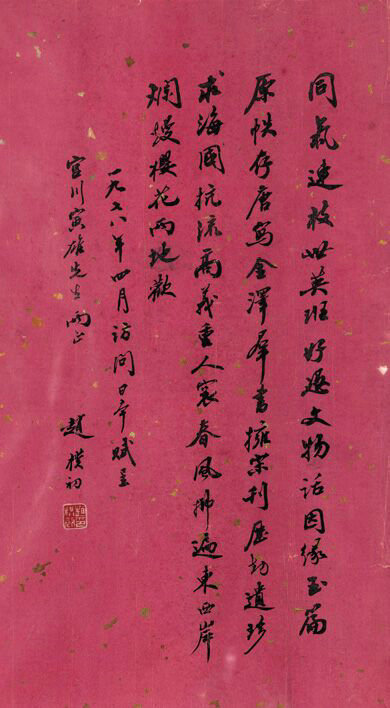 同氣連枝世莫班好憑文物話因緣玉篇
原帙存唐寫金澤群書擁宋刊歷劫遺珍
求海國抗流高義重人寰春風拂遍東西岸
爛熳櫻花兩地歡
一九七八年四月訪問日本賦呈
宮川寅雄先生兩正
趙樸初